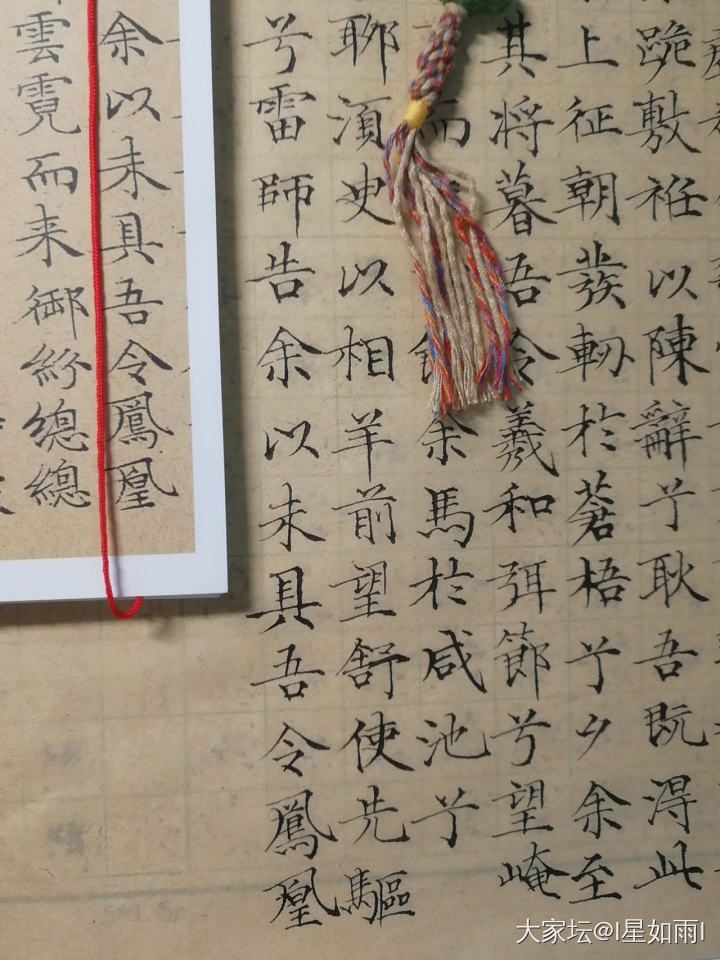 跪敷衽以陳辭兮耿吾既淂此
上征朝發軔於蒼梧兮夕余至
其将暮吾令羲和弭節兮望崦
而余馬於咸池兮
聊須臾以相羊前望舒使先驅
兮雷師告余以未具吾令鳳凰
余以未具吾令鳳凰
雲霓而来御紛總總
大家坛@l星如雨l